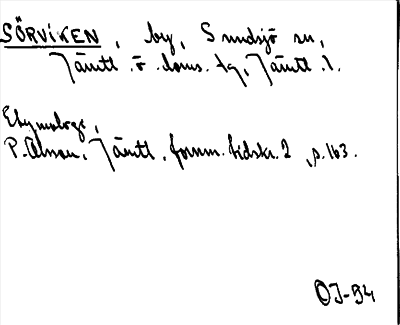 SÖRVIKEN, by, Sundsjö sn,
Jämtl. ö. doms. tg, Jämtl. l.
Etymologi,
P. Olsson, Jämtl. fornm. tidskr. 2, s. 163.
OJ-94